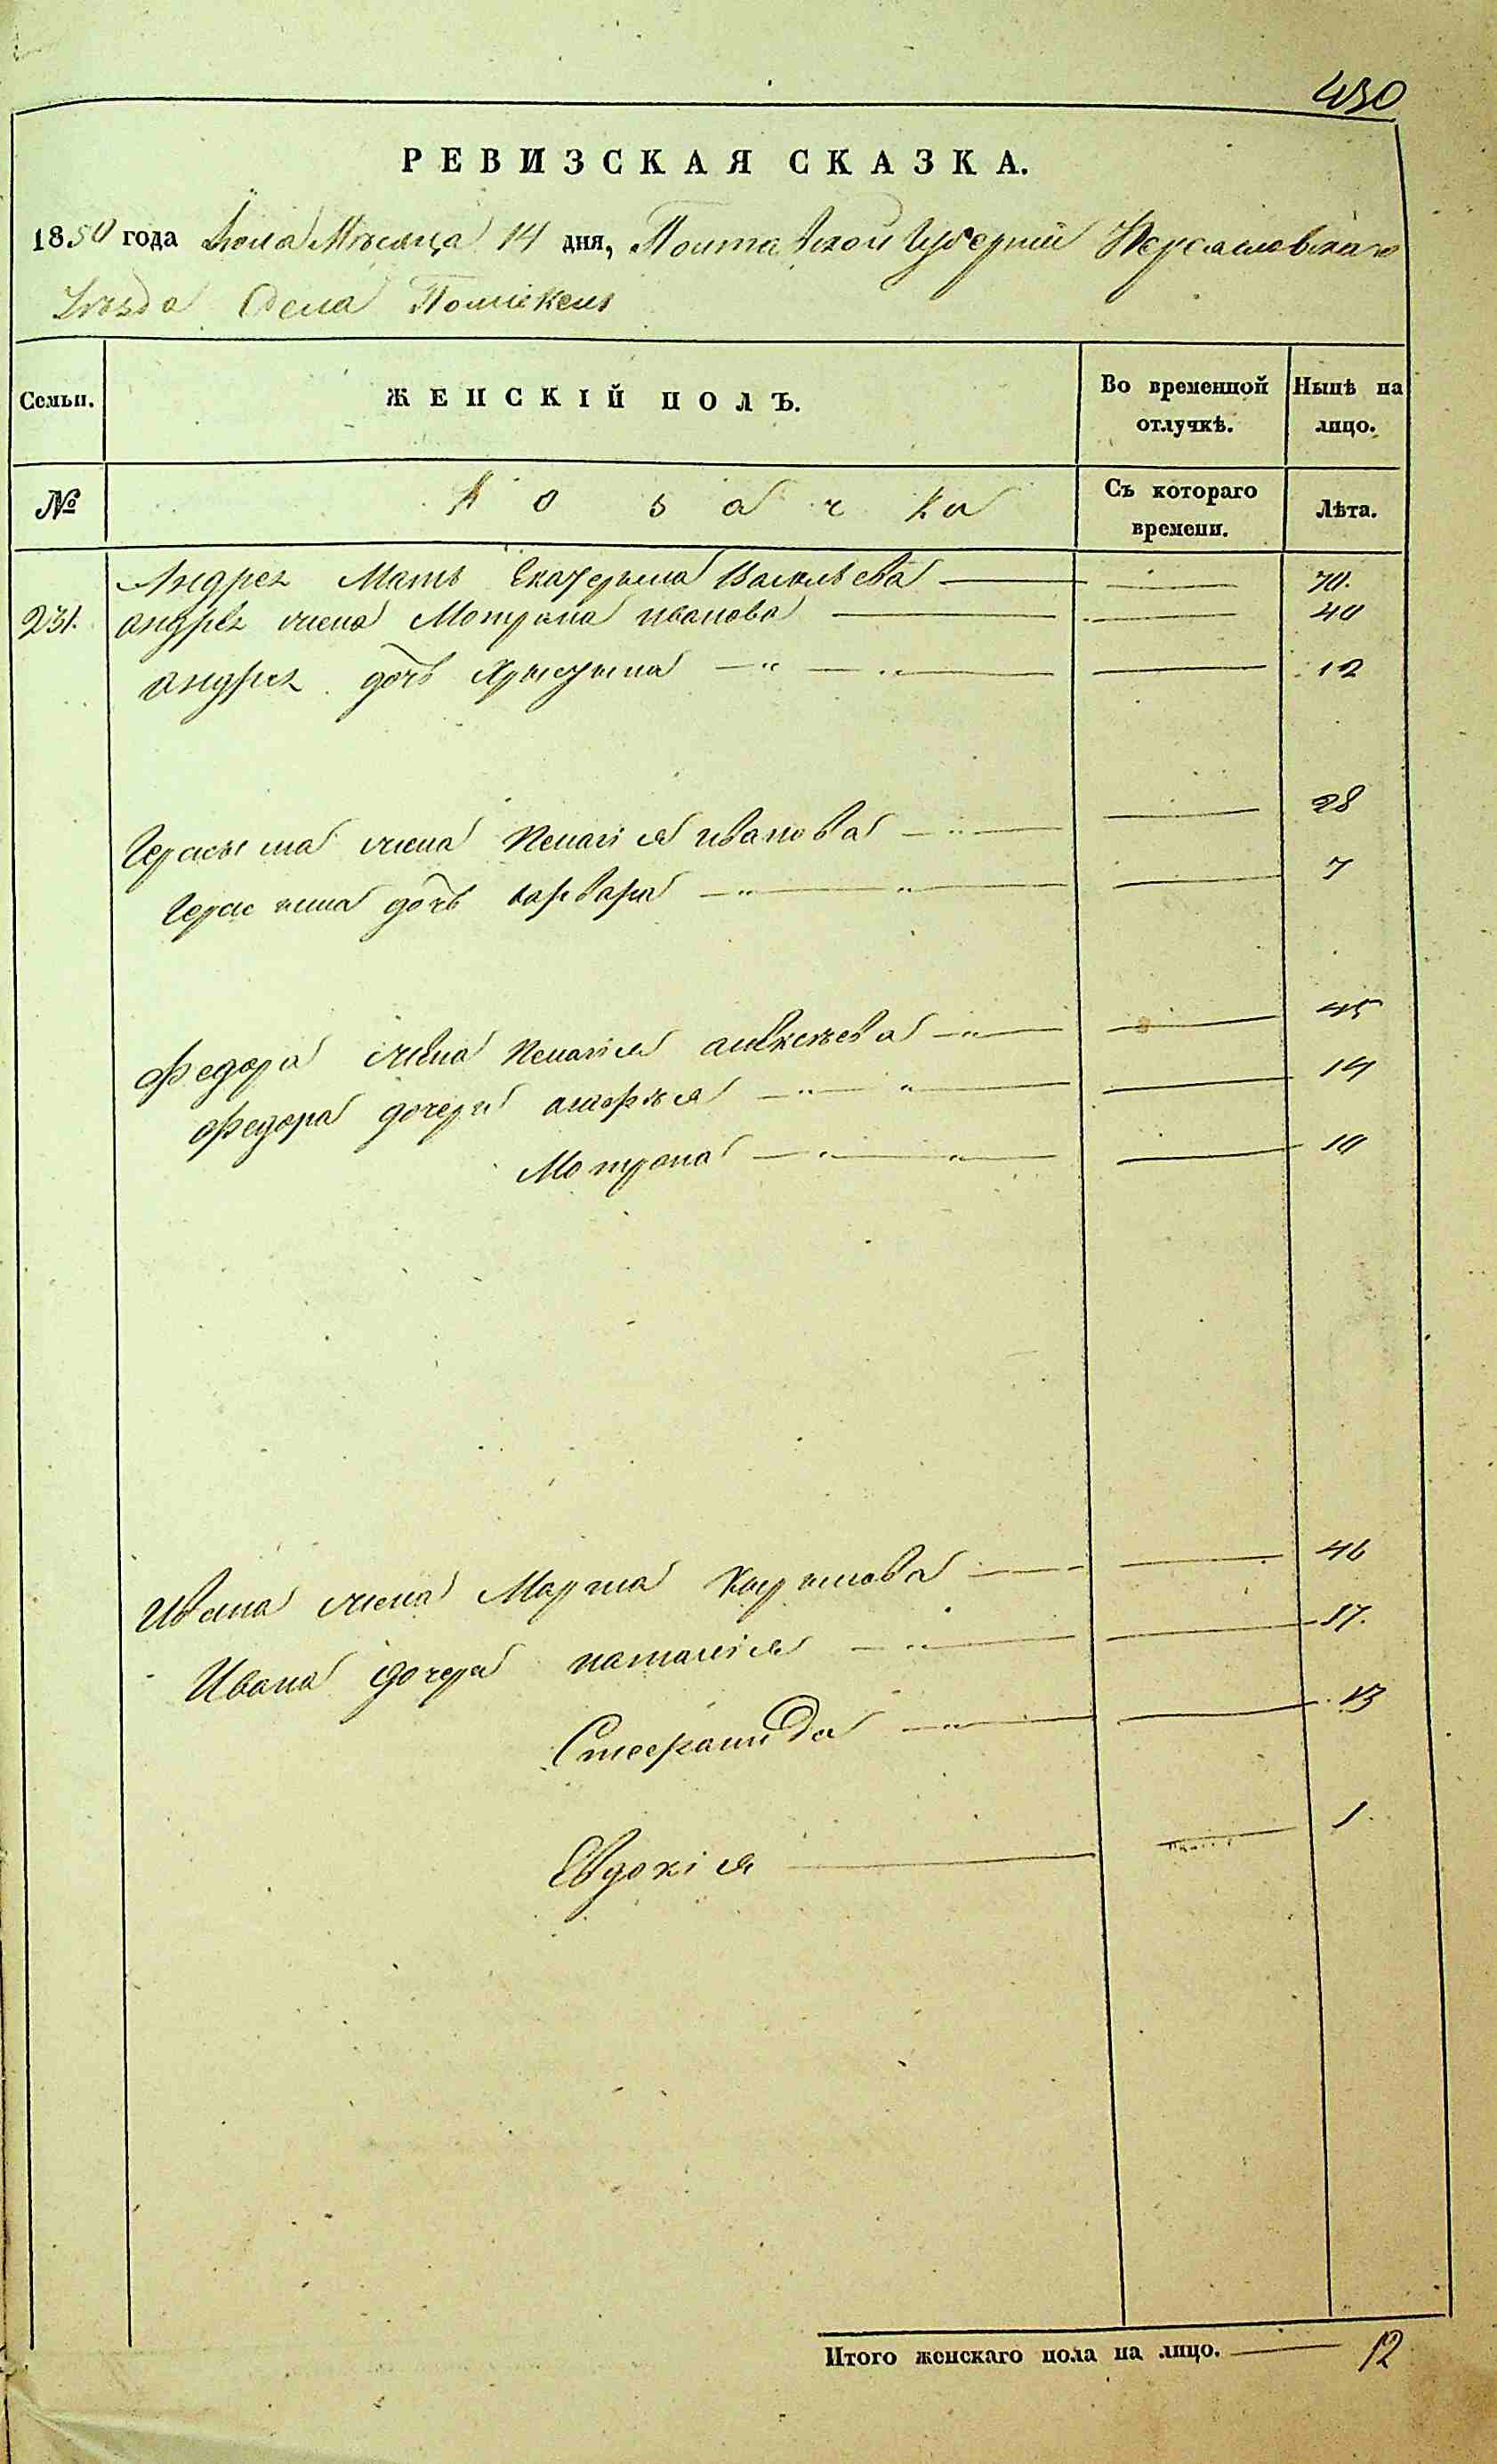 430
РЕВИЗСКАЯ СКАЗКА.
1850 года Июля Мѣсяца 14 дня, Полтавской Губерніи Переяславскаго
Уѣзда Села Помоклей
Семьи.
ЖЕНСКІЙ ПОЛЪ.
Во временной отлучкѣ.
Нынѣ на лицо.
№
Козачка
Съ котораго времени.
Лѣта.
Андрея Мать Екатерына Васильева 70.
231. Андрея жена Мотрона Иванова 40
Андрея дочь Хрыстына 12
Герасыма жена Пелагія Иванова 28
Герасима дочь Варвара 7
Федора жена Пелагія Алексѣева 45
Федора дочери 14
Мотрона 10
Ивана жена Марта Кирилова 46
Ивана дочери Наталія 17.
Стефанида 13
Евдокія 1
Итого женскаго пола на лицо. 12